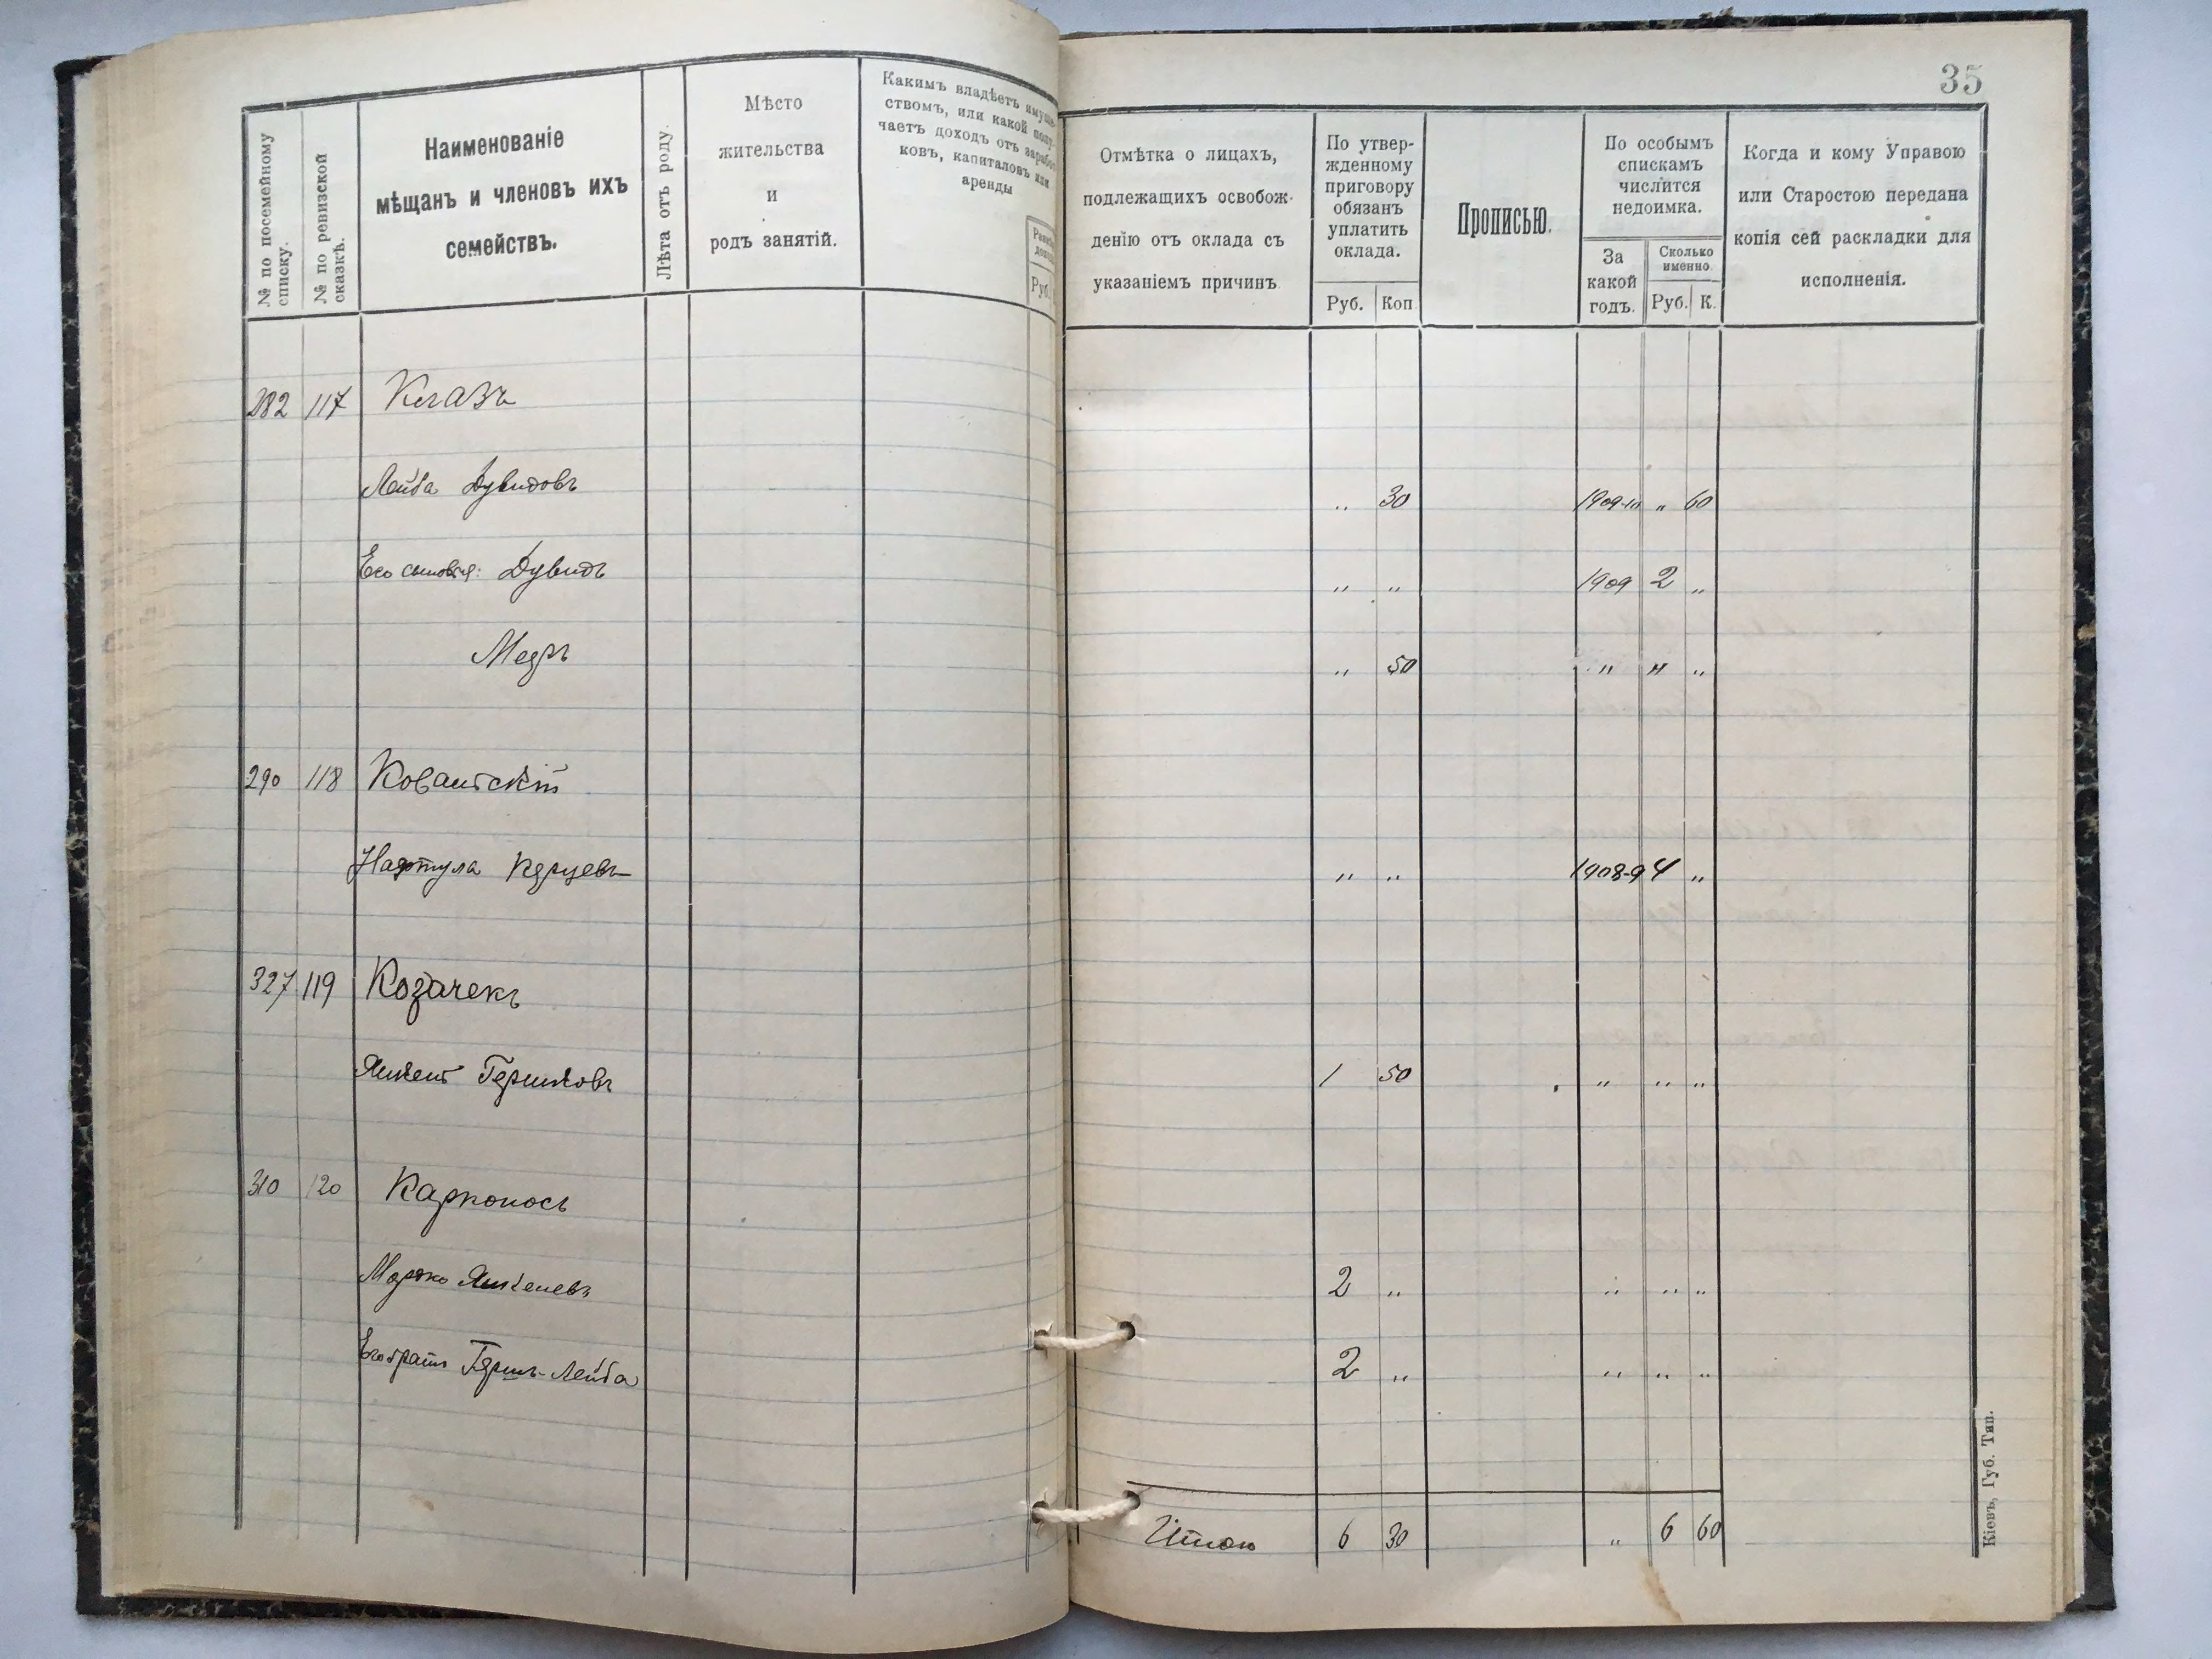 35
№ по посемейному списку.
№ по ревизской сказкѣ.
Наименованіе
мѣщанъ и членовъ ихъ
семействъ.
Лѣта отъ роду.
Мѣсто
жительства
и
родъ занятій.
Какимъ владѣетъ имуще-
ствомъ, или какой полу-
чаетъ доходъ отъ заработ
ковъ, капиталовъ или
аренды
Руб.
Отмѣтка о лицахъ,
подлежащихъ освобож-
денію отъ оклада съ
указаніемъ причинъ
По утвер-
жденному
приговору
обязанъ
уплатить
оклада.
Руб. Коп.
Прописью.
По особымъ
спискамъ
числится
недоимка.
За
какой
годъ.
Сколько
именно
Руб. К.
Когда и кому Управою
или Старостою передана
копія сей раскладки для
исполненія.
282 117 Клазъ
Лейба Дувидовъ „ 30 1909-10 „ 60
Его сыновья: Дувидъ „ „ 1909 2 „
Мееръ „ 50 „ „ „
290 118
Нафтула „ „ 1908-9 4 „
327 119 Козачекъ
Янкель Гершковъ 1 50 „ „ „
310 120 Карконосъ
Мошко Янкелевъ 2 „ „ „ „
Его братъ Гершъ-Лейба 2 „ „ „ „
Итого 6 30 „ 6 60
Кіевъ, Губ. Тип.